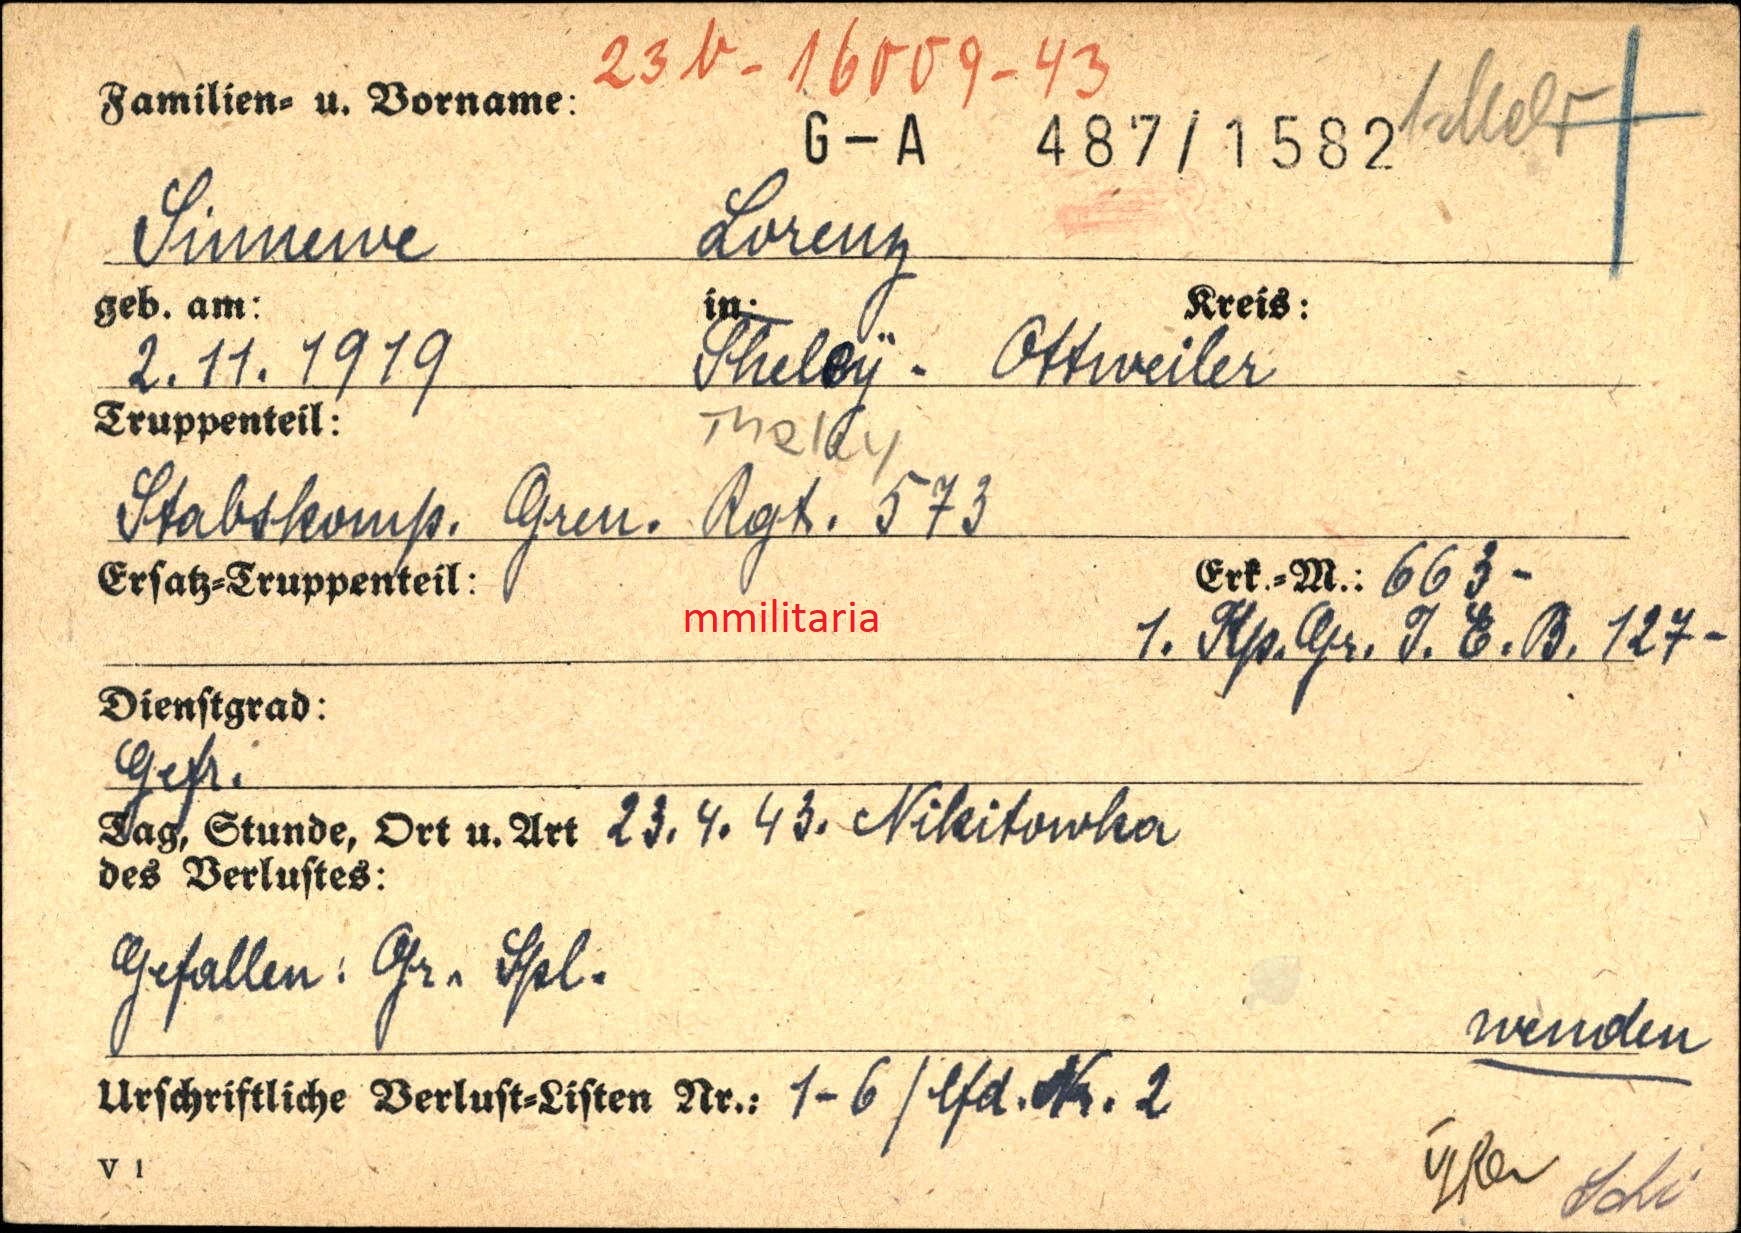 23b-16009-43
Familien- u. Vorname:
G-A 487/1582
Sinnewe Lorenz
geb. am: in: Kreis:
2.11.1919 Sheley- Ottweiler
Truppenteil: Theley
Stabskomp. Gren. Rgt. 573
Ersatz-Truppenteil: Erk.-M.: 663-
mmilitaria
1. Kp. Gr. I. E. B. 127-
Dienstgrad:
Gefr.
Tag, Stunde, Ort u. Art 23.4.43. Nikitowka
des Verlustes:
Gefallen: Gr. Spl.
wenden
Urschriftliche Verlust-Listen Nr.: 1-6/lfd. Nr. 2
V 1